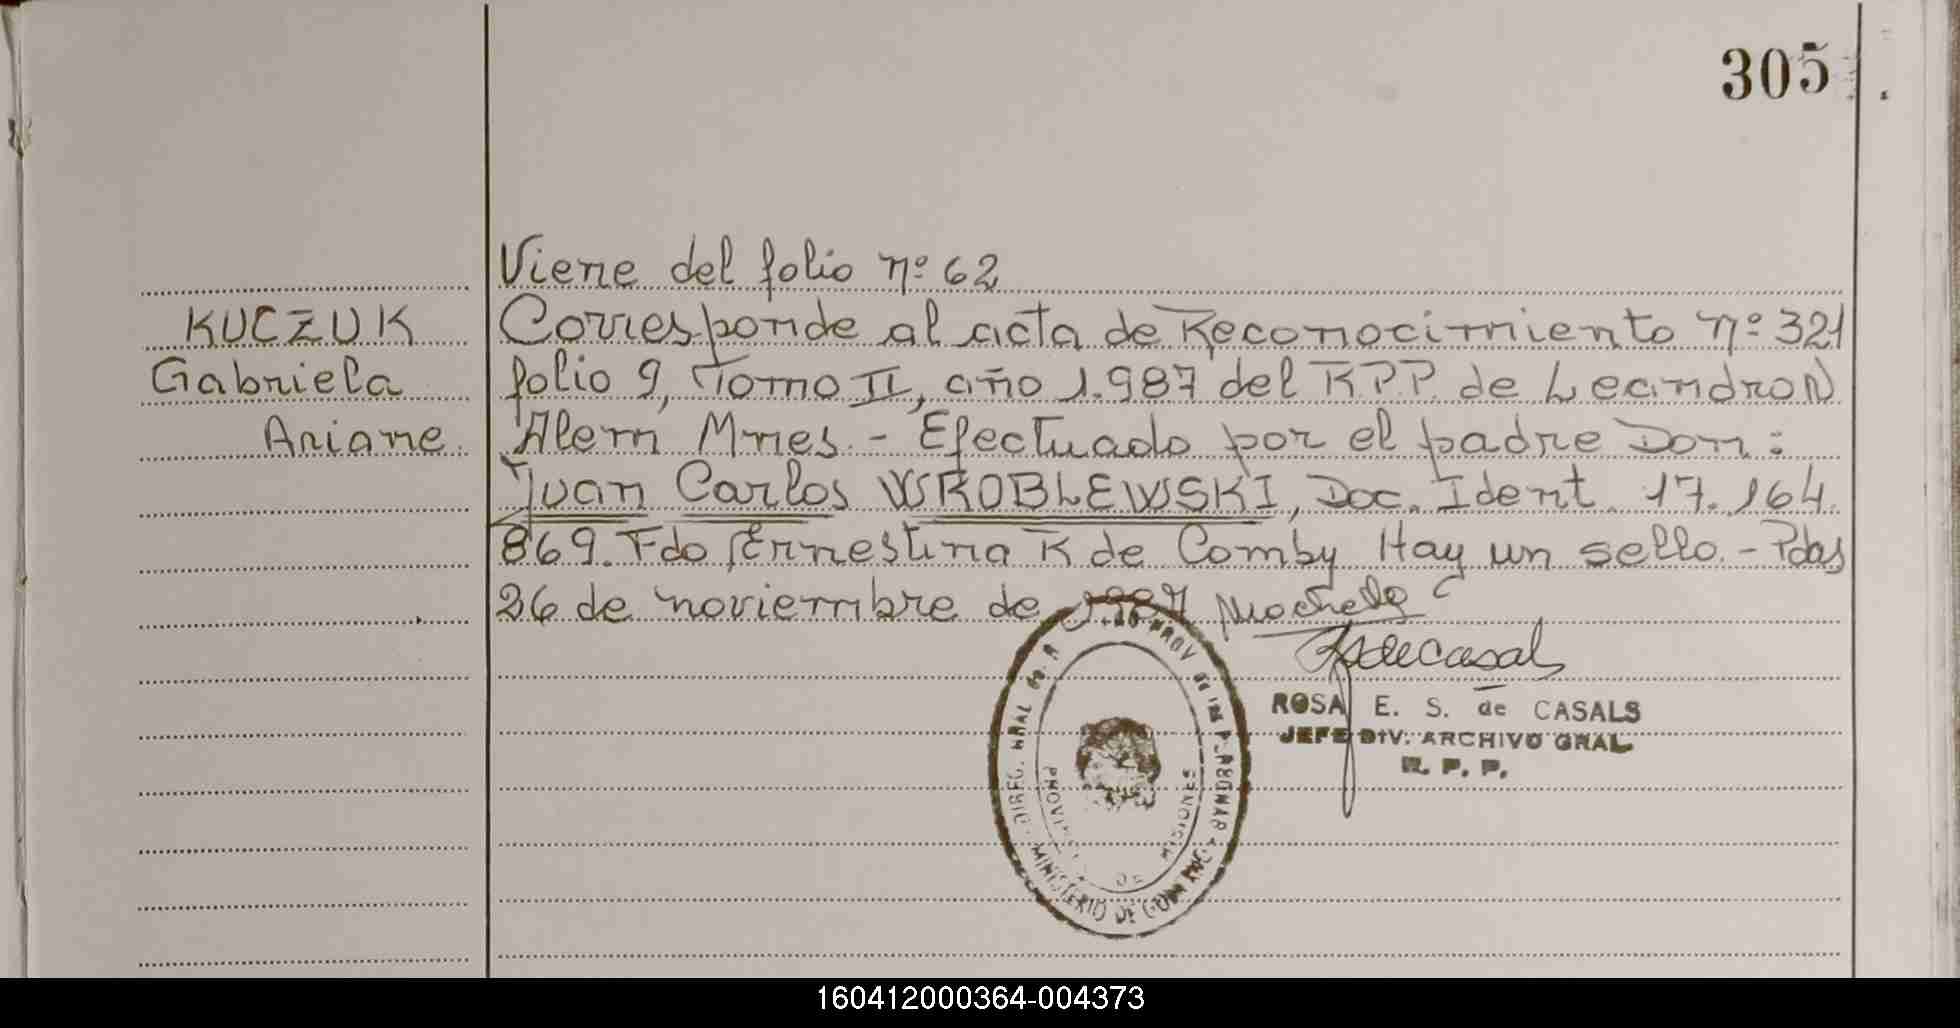 305
Viene del folio nº 62
KUCZUK
Gabriela
Ariane.
Corresponde al acta de Reconocimiento nº 321
folio 9, Tomo II, año 1.987 del R.P.P. de Leandro N
Alem Mnes. - Efectuado por el padre Don:
Juan Carlos WROBLEWSKI, Doc. Ident. 17.164.
869. Fdo Ernestina K de Comby Hay un sello. - Pdas
26 de noviembre de 1987
ROSA E. S. de CASALS
JEFE DIV. ARCHIVO GRAL.
R. P. P.
DIREC. GRAL de
PROV de
MINISTERIO DE
DE MISIONES
160412000364-004373